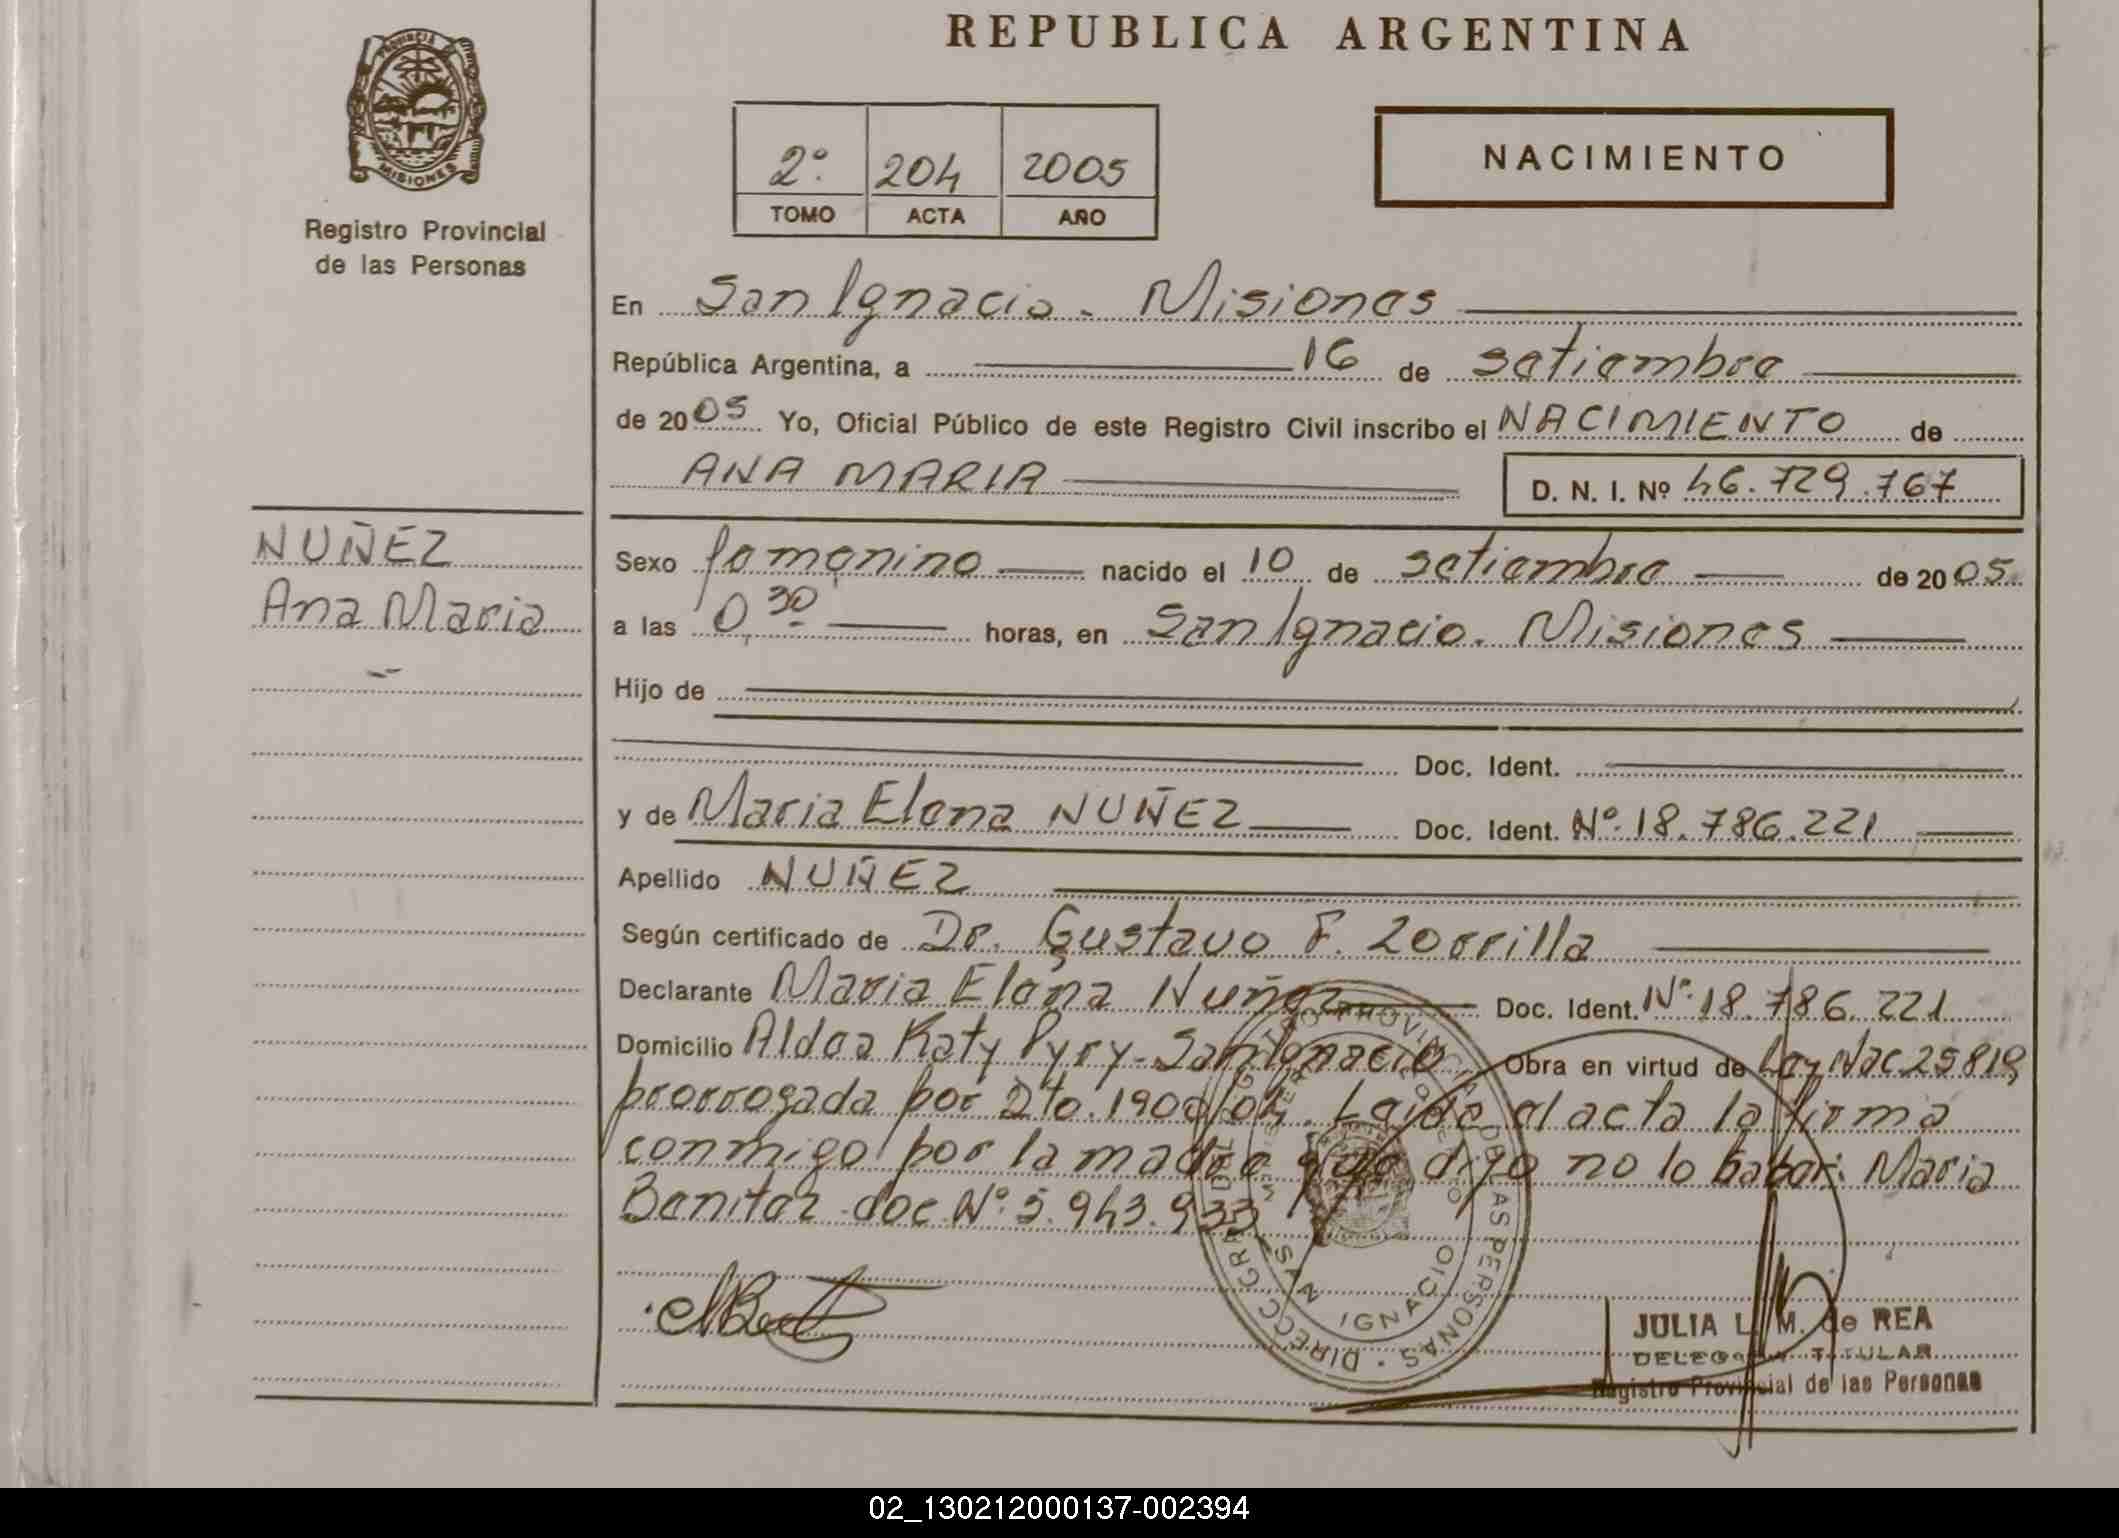 REPUBLICA ARGENTINA
PROVINCIA
MISIONES
Registro Provincial
de las Personas
2º 204 2005
TOMO ACTA AÑO
NACIMIENTO
En San Ignacio - Misiones
República Argentina, a 16 de setiembre
de 2005 Yo, Oficial Público de este Registro Civil inscribo el NACIMIENTO de
ANA MARIA D. N. I. Nº 46.729.767
NUÑEZ
Ana Maria
Sexo femenino nacido el 10 de setiembre de 2005
a las 0,30 horas, en San Ignacio. Misiones
Hijo de
Doc. Ident.
y de Maria Elena NUÑEZ Doc. Ident. Nº 18.786.221
Apellido NUÑEZ
Según certificado de Dr. Gustavo F. Zorrilla
Declarante Maria Elena Nuñez Doc. Ident. Nº 18.786.221
Domicilio Aldea Katy Pyry - San Ignacio Obra en virtud de Ley Nac 25819
prorrogada por Dto. 1900/04. Leída el acta la firma
conmigo por la madre que dijo no lo saber: Maria
Benitez doc Nº 5.943.933
DIRECC GRAL DEL REGISTRO PROVINCIAL DE LAS PERSONAS
SAN IGNACIO
JULIA L. M. de REA
DELEGADA TITULAR
Registro Provincial de las Personas
02_130212000137-002394